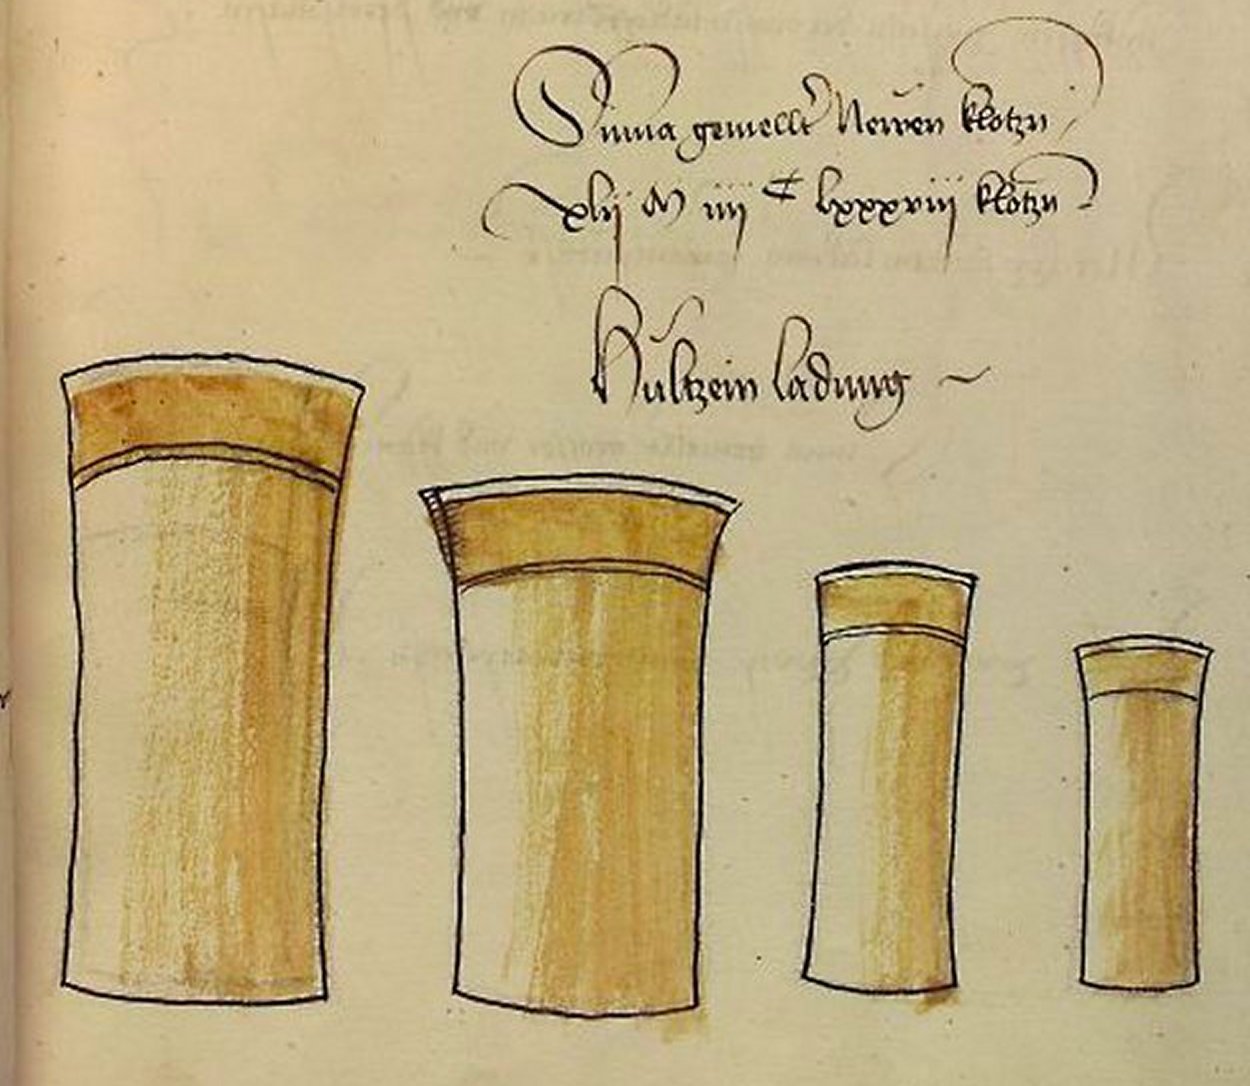 Suma gemellt Newen klotzn
xlij M iiij C lxxxviij klotzn
Hültzein ladung ~